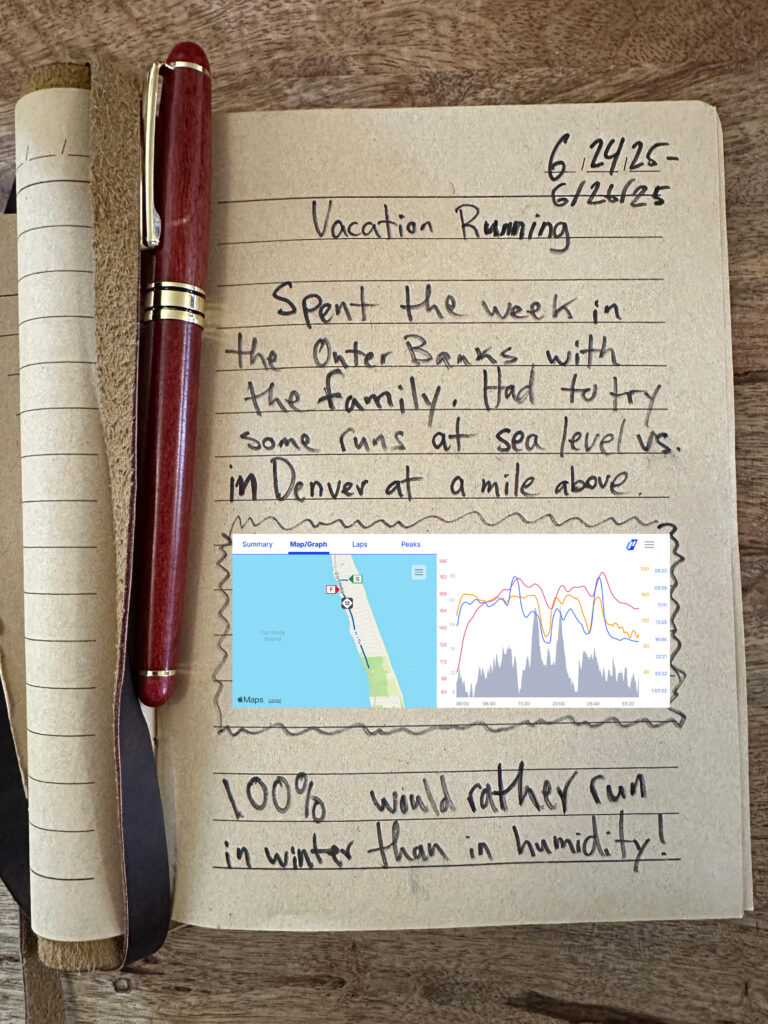 6/24/25-
6/26/25
Vacation Running
Spent the week in
the Outer Banks with
the family. Had to try
some runs at sea level vs.
in Denver at a mile above.
Summary Map/Graph Laps Peaks
S
F
12
Currituck
Sound
Maps Legal
200
160
120
80
40
08:23
11:11
13:25
16:46
23:21
1:07:03
00:00 06:40 13:20 20:00 26:40 33:20
100% would rather run
in winter than in humidity!